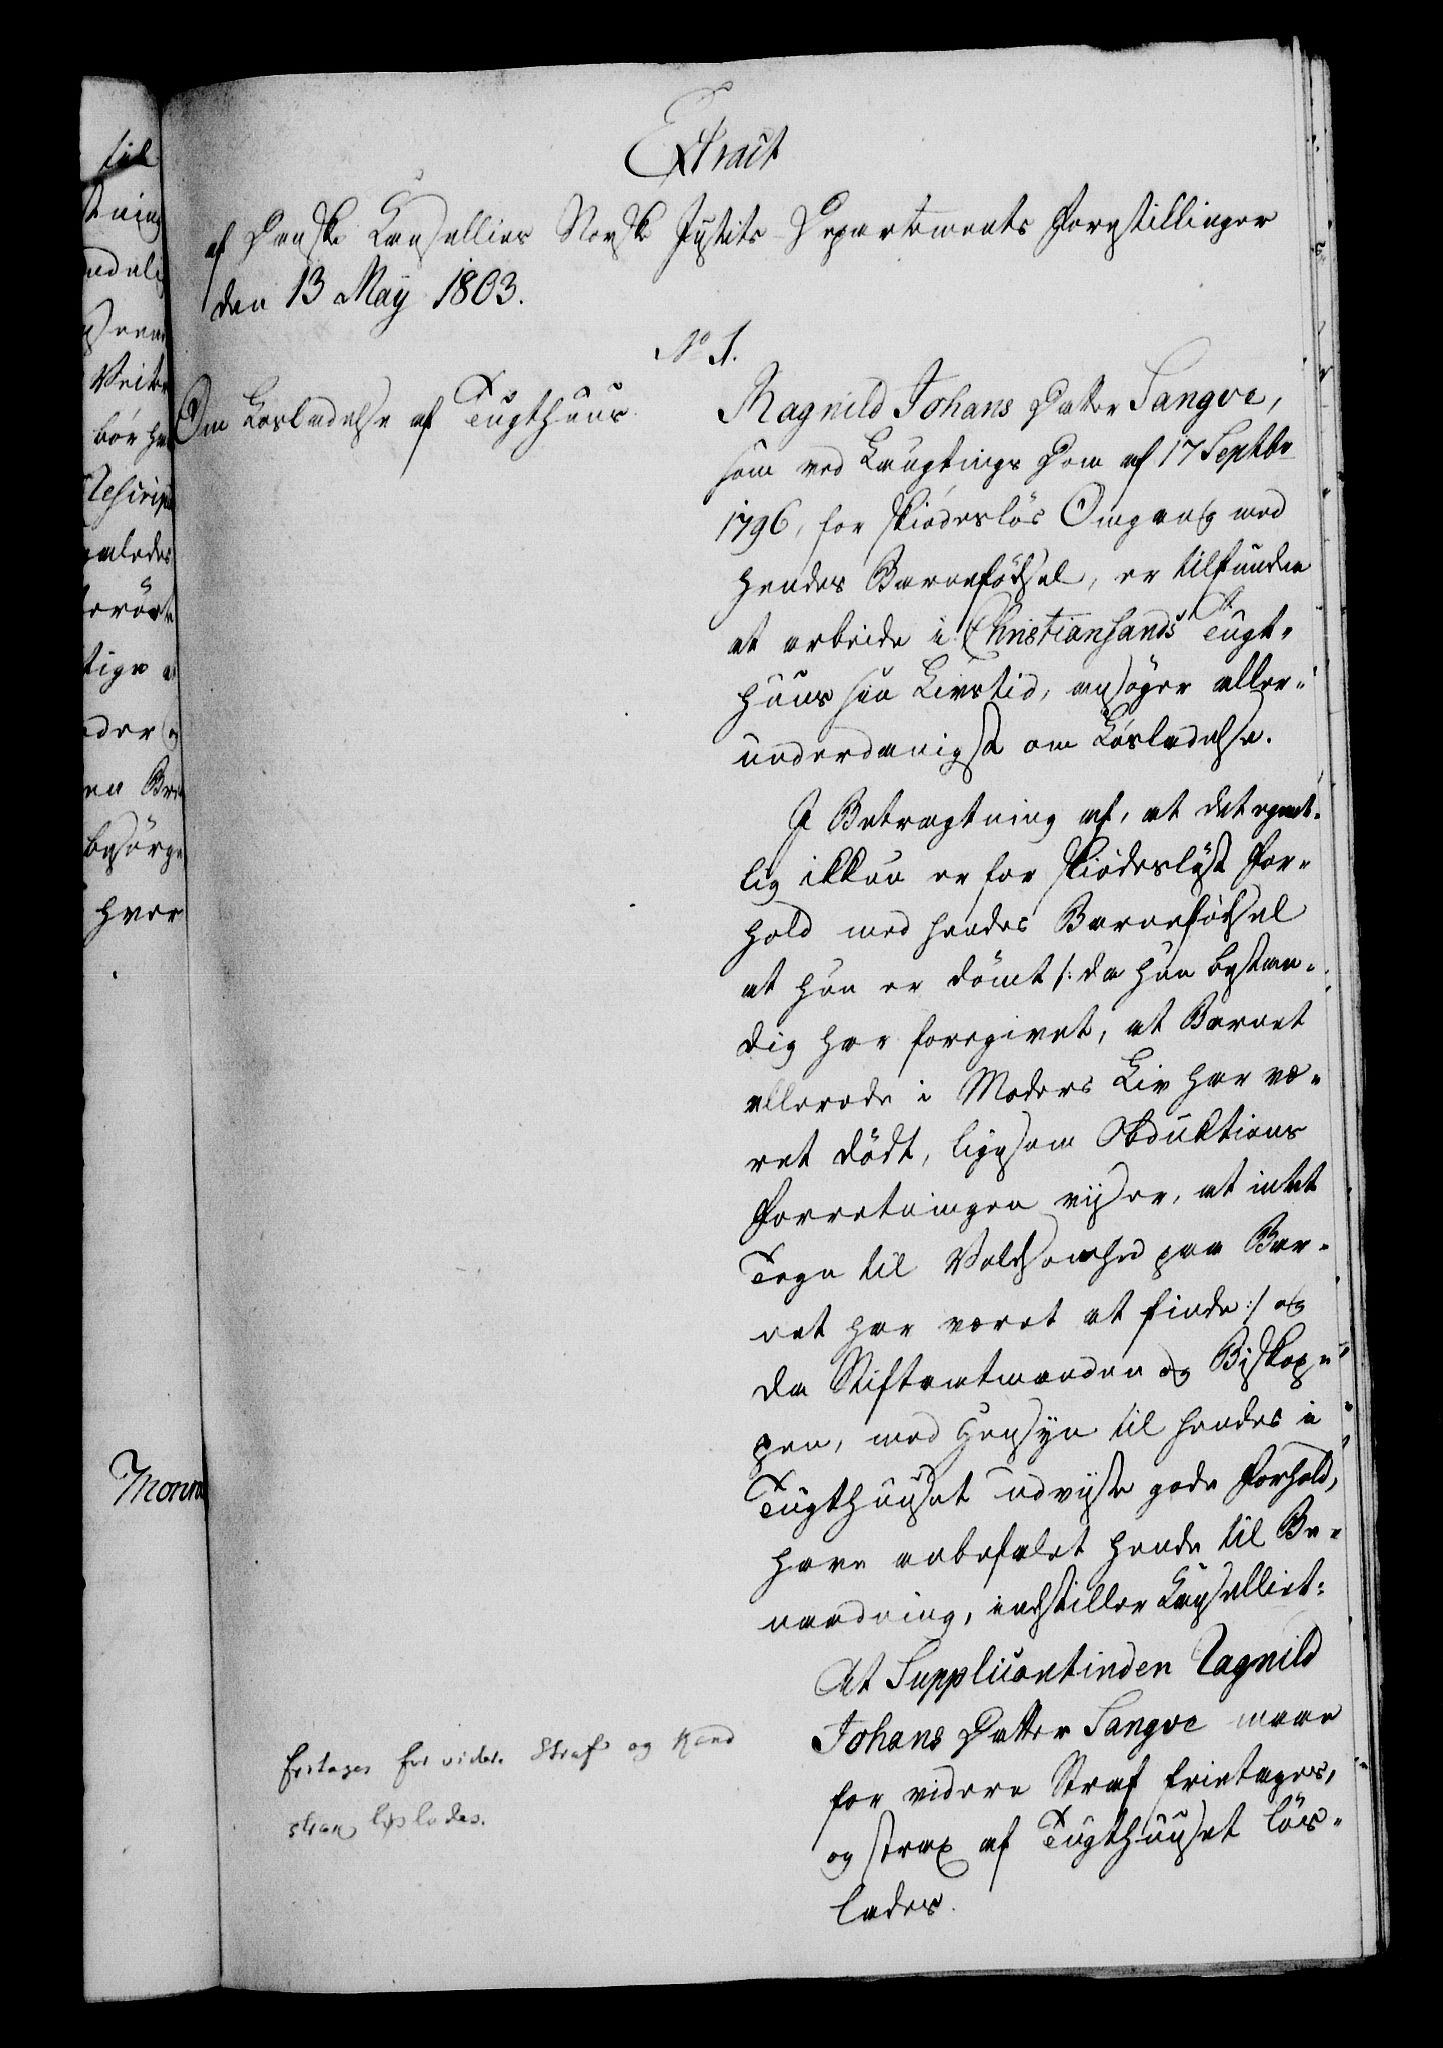 Extract
af Danske Cancellies Norske Justits Departements Forestillinger
den 13 May 1803.
No 1.
Om Løsladelse af Tugthuus.
Ragnild Johans Datter Sangve,
som ved Laugtings Dom af 17 Septbr
1796, for skiødesløs Omgang med
hendes Barnefødsel, er tilfunden
at arbeide i Christiansands Tugt-
huus sin Livstid, ansøger aller-
underdanigst om Løsladelse.
I Betragtning af, at det egent-
lig ikkun er for skiødesløst For-
hold med hendes Barnefødsel
at hun er dömt /: da hun bestan-
dig har foregivet, at Barnet
allerede i Moders Liv har væ-
ret dödt, ligesom Obduktions
Forretningen viser, at intet
Tegn til Voldsomhed paa Bar-
net har været at finde :/ og
da Stiftamtmanden og Biskop-
pen, med Hensyn til hendes i
Tugthuuset udviiste gode Forhold,
have anbefalet hende til Be-
naadning, indstiller Cancelliet:
At Supplicantinden Ragnild
Johans Datter Sangve maae
for videre Straf frietages,
og strax af Tugthuuset løs-
lades.
fritages for videre Straf og kand
strax løslades.
til
hver